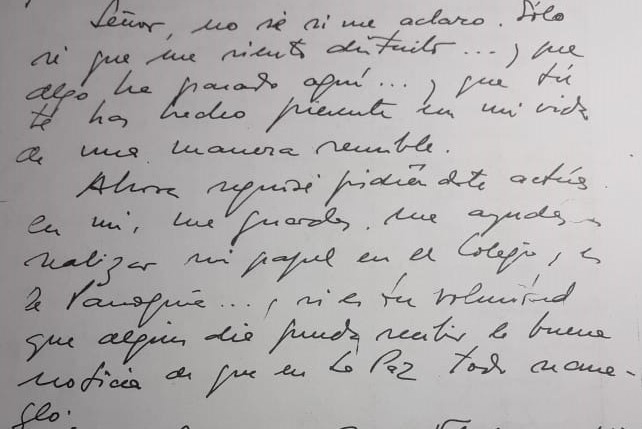 Señor, no sé si me aclaro. Sólo
sé que me siento distinto..., que
algo ha pasado aquí..., que tú
te has hecho presente en mi vida
de una manera sensible.
Ahora seguiré pidiéndote actúes
en mí, me guardes, me ayudes a
realizar mi papel en el Colegio, en
la Parroquia..., si es tu voluntad
que algún día pueda recibir la buena
noticia de que en La Paz todo se arre-
gló.